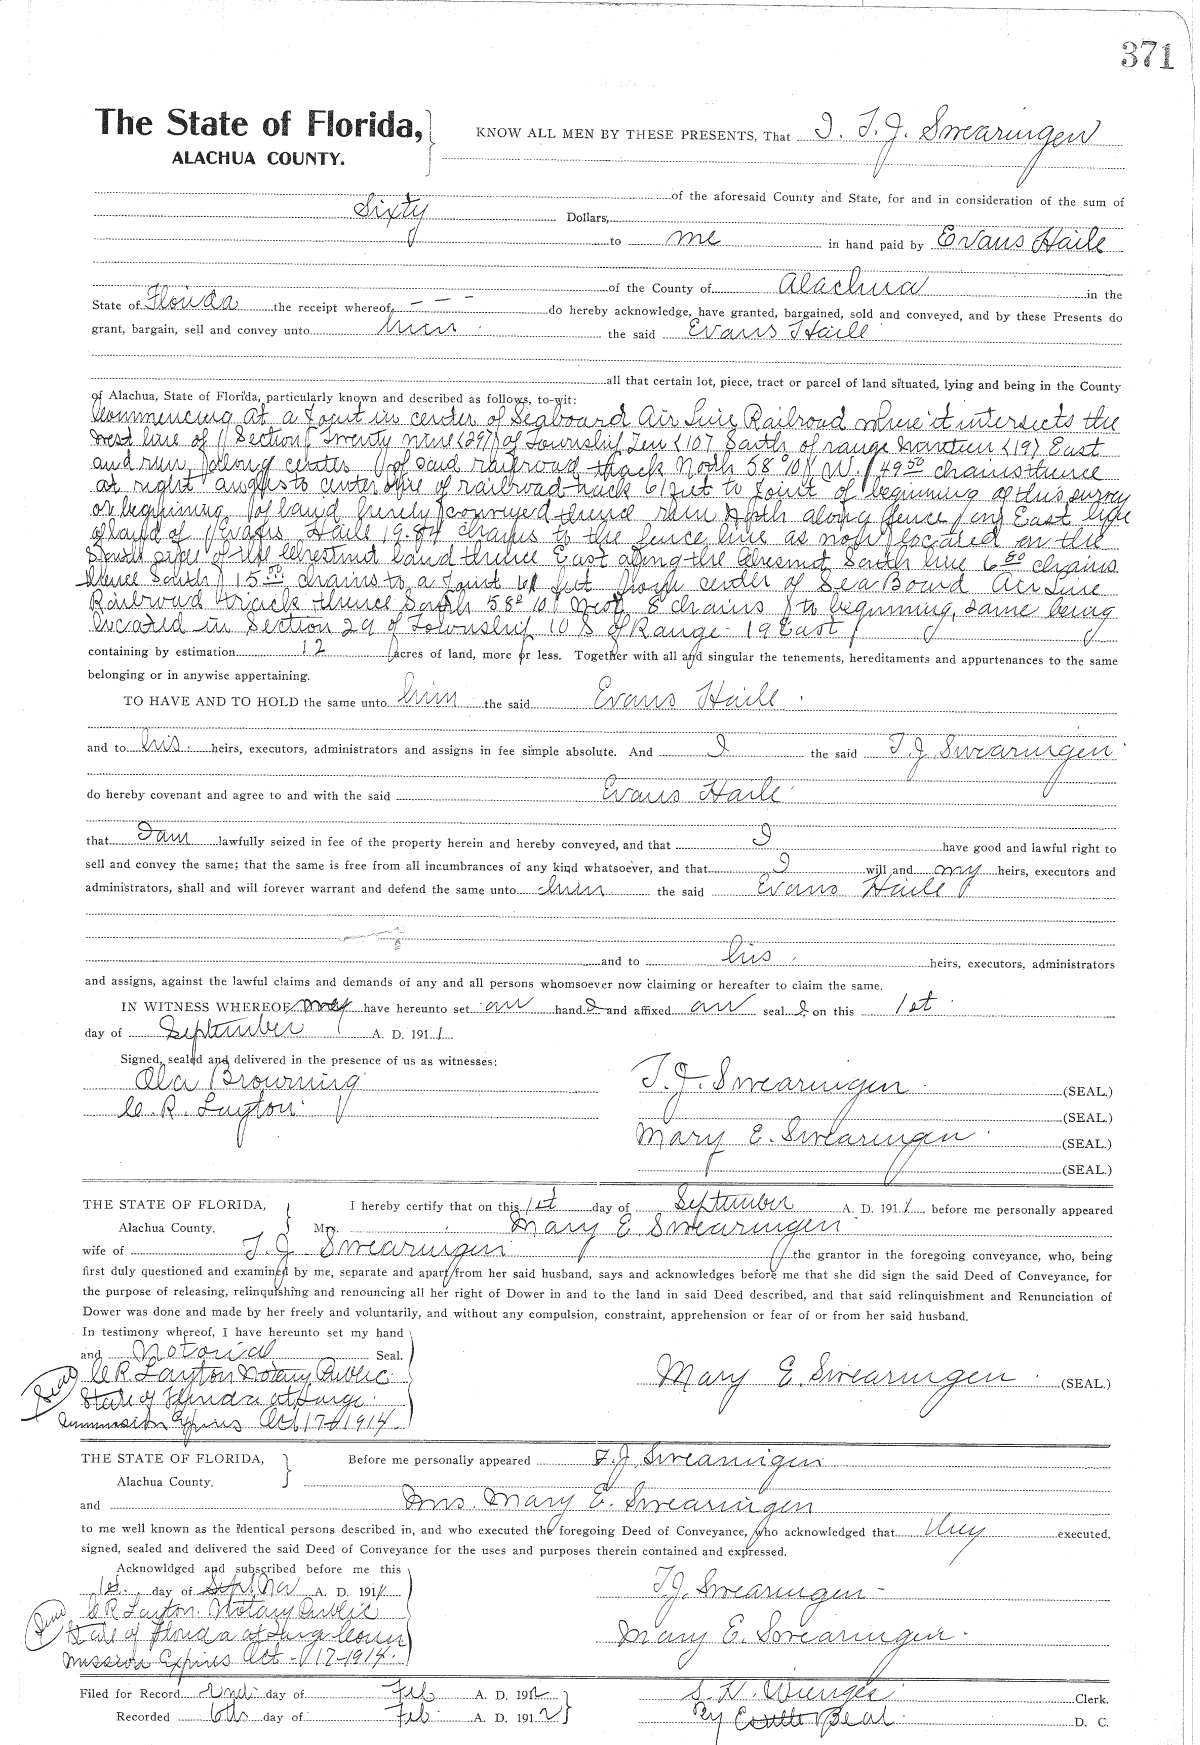 371
The State of Florida, KNOW ALL MEN BY THESE PRESENTS, That I. T. J. Swearingen
ALACHUA COUNTY.
of the aforesaid County and State, for and in consideration of the sum of
Sixty Dollars,
to me in hand paid by Evans Haile
of the County of Alachua in the
State of Florida the receipt whereof, - - - do hereby acknowledge, have granted, bargained, sold and conveyed, and by these Presents do
grant, bargain, sell and convey unto him the said Evans Haile
all that certain lot, piece, tract or parcel of land situated, lying and being in the County
of Alachua, State of Florida, particularly known and described as follows, to-wit:
Commencing at a point in center of Seaboard Air Line Railroad where it intersects the
West line of Section Twenty nine (29) of Township Ten (10) South of range nineteen (19) East
and run along center of said railroad track North 58° 10' W. 49 50 chains thence
at right angles to center line of railroad track 61 feet to point of beginning of this survey
or beginning of land hereby conveyed thence run North along fence on East line
of land of Evans Haile 19.84 chains to the fence line as now located on the
South side of the land thence East along the South line 6 50 chains
thence South 15 50 chains to a point 61 feet from center of Sea Board Air Line
Railroad track thence South 58° 10' West 8 chains to beginning, same being
located in Section 29 of Township 10 S of Range - 19 East
containing by estimation 12 acres of land, more or less. Together with all and singular the tenements, hereditaments and appurtenances to the same
belonging or in anywise appertaining.
TO HAVE AND TO HOLD the same unto him the said Evans Haile
and to his heirs, executors, administrators and assigns in fee simple absolute. And I the said T. J. Swearingen
do hereby covenant and agree to and with the said Evans Haile
that I am lawfully seized in fee of the property herein and hereby conveyed, and that I have good and lawful right to
sell and convey the same; that the same is free from all incumbrances of any kind whatsoever, and that I will and my heirs, executors and
administrators, shall and will forever warrant and defend the same unto him the said Evans Haile
and to his heirs, executors, administrators
and assigns, against the lawful claims and demands of any and all persons whomsoever now claiming or hereafter to claim the same.
IN WITNESS WHEREOF, have hereunto set our hand s and affixed our seal s on this 1st
day of September A. D. 1911
Signed, sealed and delivered in the presence of us as witnesses:
Ola Browning T. J. Swearingen (SEAL.)
C. R. Layton (SEAL.)
Mary E. Swearingen (SEAL.)
(SEAL.)
THE STATE OF FLORIDA, I hereby certify that on this 1st day of September A. D. 1911, before me personally appeared
Alachua County. Mrs. Mary E Swearingen
wife of T. J. Swearingen the grantor in the foregoing conveyance, who, being
first duly questioned and examined by me, separate and apart from her said husband, says and acknowledges before me that she did sign the said Deed of Conveyance, for
the purpose of releasing, relinquishing and renouncing all her right of Dower in and to the land in said Deed described, and that said relinquishment and Renunciation of
Dower was done and made by her freely and voluntarily, and without any compulsion, constraint, apprehension or fear of or from her said husband.
In testimony whereof, I have hereunto set my hand
and Notorial Seal.
Seal C R Layton Notary Public Mary E. Swearingen (SEAL.)
State of Florida at Large
Commission Expires Oct 17-1914
THE STATE OF FLORIDA, Before me personally appeared T. J. Swearingen
Alachua County.
and Mrs. Mary E. Swearingen
to me well known as the identical persons described in, and who executed the foregoing Deed of Conveyance, who acknowledged that they executed,
signed, sealed and delivered the said Deed of Conveyance for the uses and purposes therein contained and expressed.
Acknowldged and subscribed before me this
1st day of Sept Nov A. D. 1911 T. J. Swearingen
Seal C R Layton. Notary Public
State of Florida at Large Com Mary E. Swearingen
mission Expires Oct - 17-1914.
Filed for Record 2nd day of Feb A. D. 1912 S. H. Wienges Clerk.
Recorded 6th day of Feb A. D. 1912 By Beal D. C.